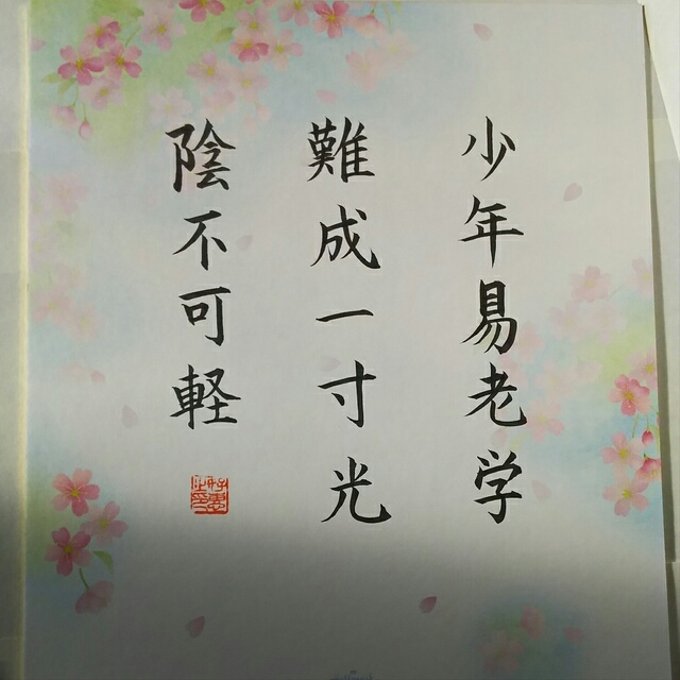 少年易老学
難成一寸光
陰不可軽